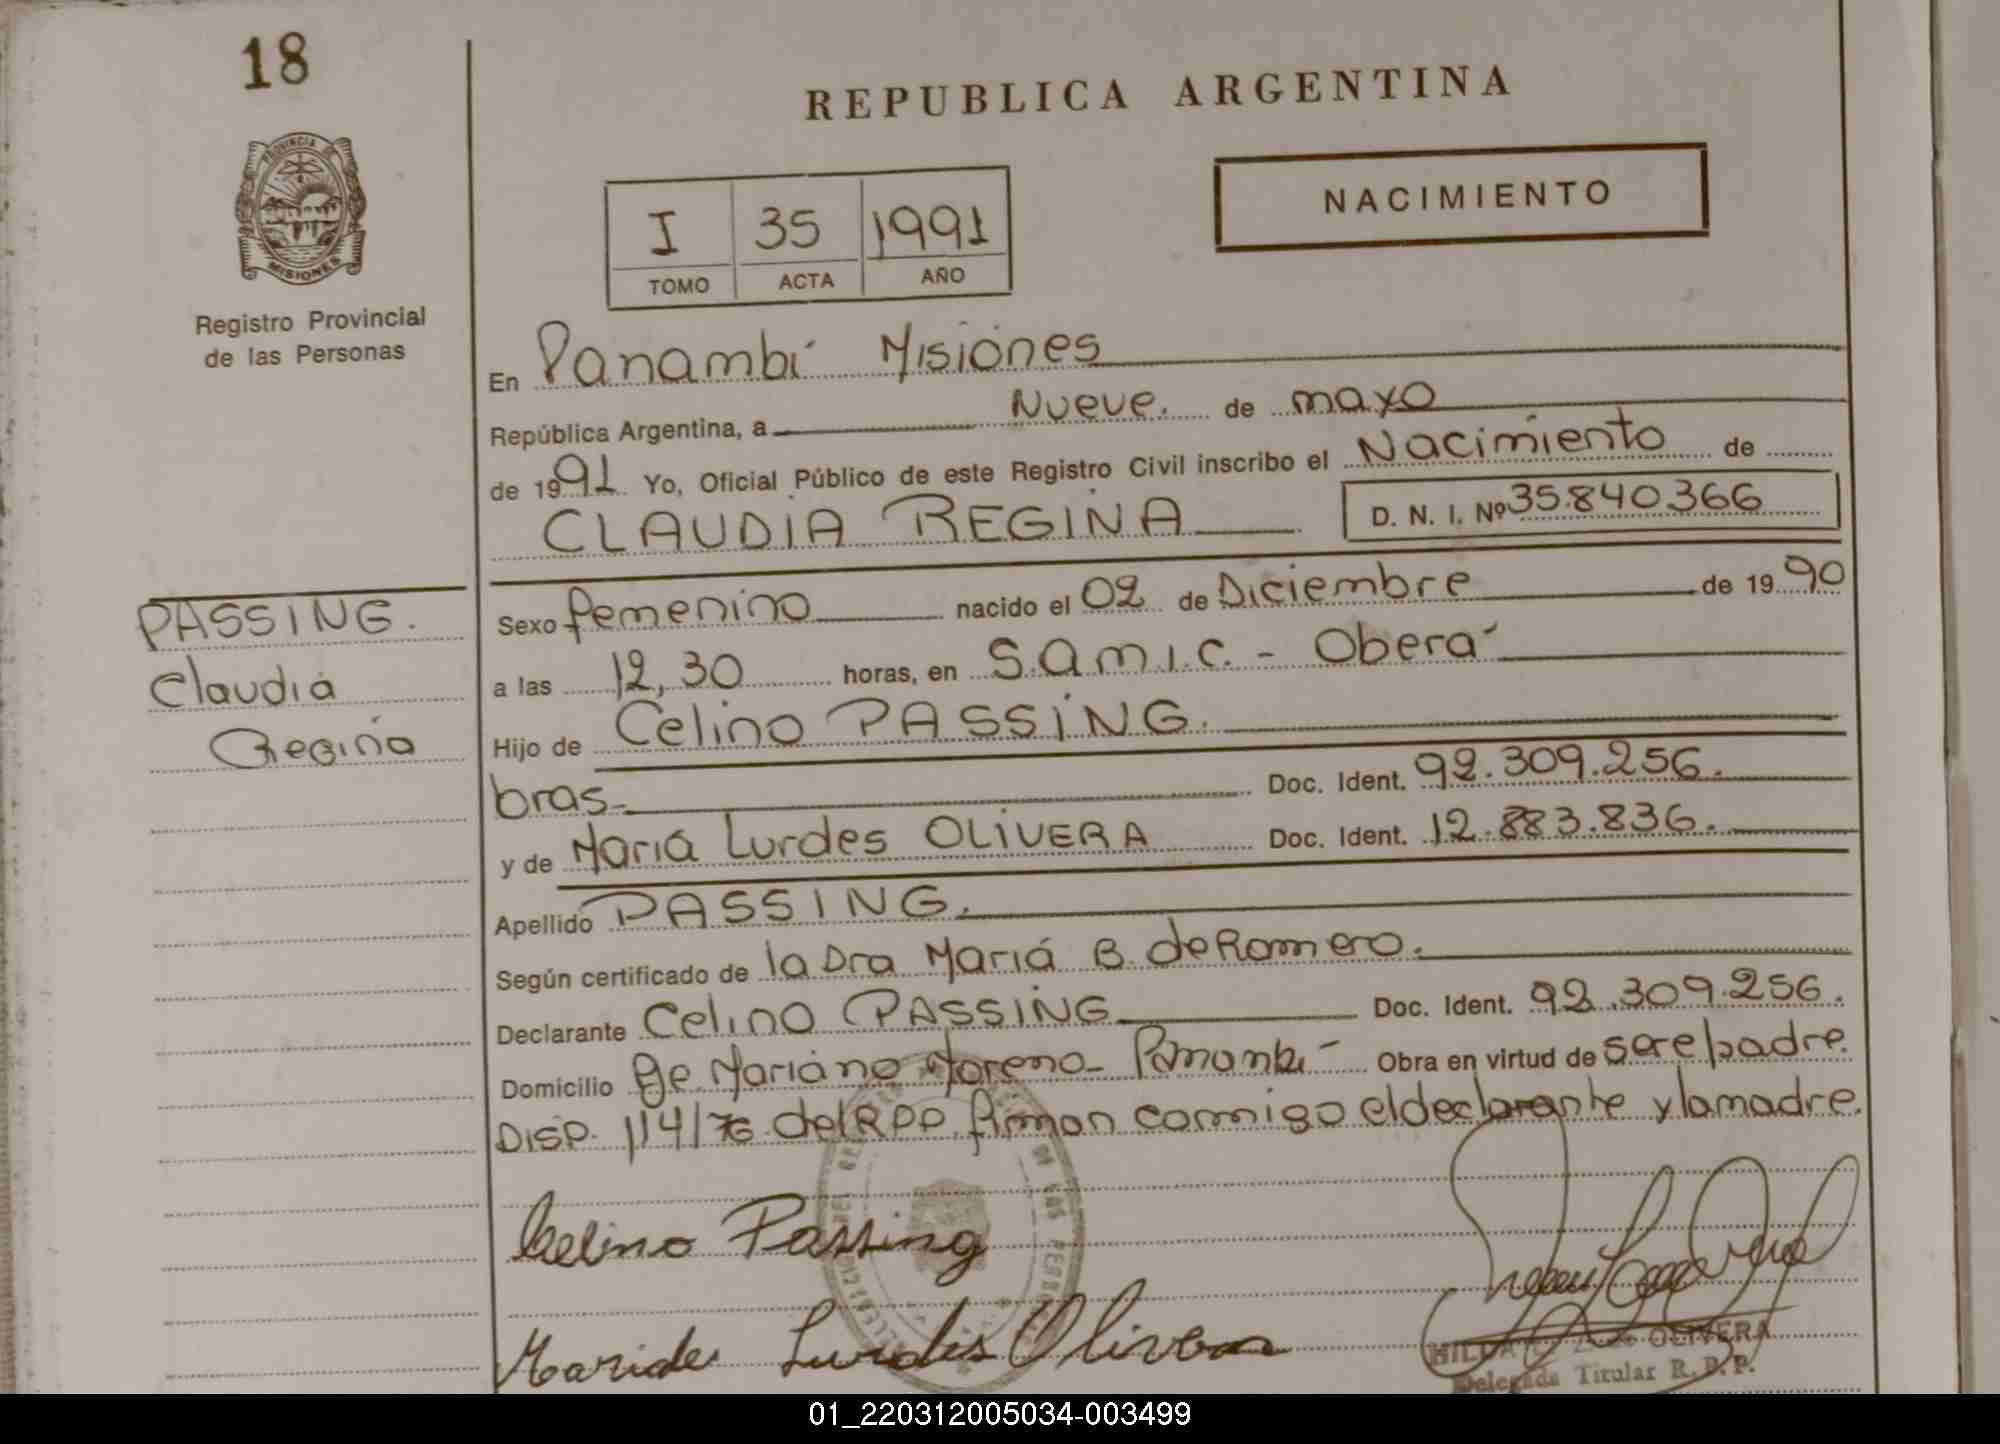 18
PROVINCIA DE
MISIONES
Registro Provincial
de las Personas
PASSING.
Claudia
Regina
REPUBLICA ARGENTINA
NACIMIENTO
I 35 1991
TOMO ACTA AÑO
En Panambí Misiones
República Argentina, a Nueve. de mayo
de 1991 Yo, Oficial Público de este Registro Civil inscribo el Nacimiento de
CLAUDIA REGINA D. N. I. Nº 35.840.366
Sexo femenino nacido el 02 de Diciembre de 1990
a las 12,30 horas, en S.a.m.i.c. - Oberá
Hijo de Celino PASSING.
bras. Doc. Ident. 92.309.256.
y de María Lurdes OLIVERA Doc. Ident. 12.883.836.
Apellido PASSING.
Según certificado de la Dra María B. de Romero.
Declarante Celino PASSING Doc. Ident. 92.309.256.
Domicilio Mariano Moreno - Panambí Obra en virtud de ser el padre.
DISP. 114/76 del RPP. firman conmigo el declarante y la madre.
Celino Passing
Maria de Lurdes Olivera
OLIVERA
Delegada Titular R. P. P.
01_220312005034-003499